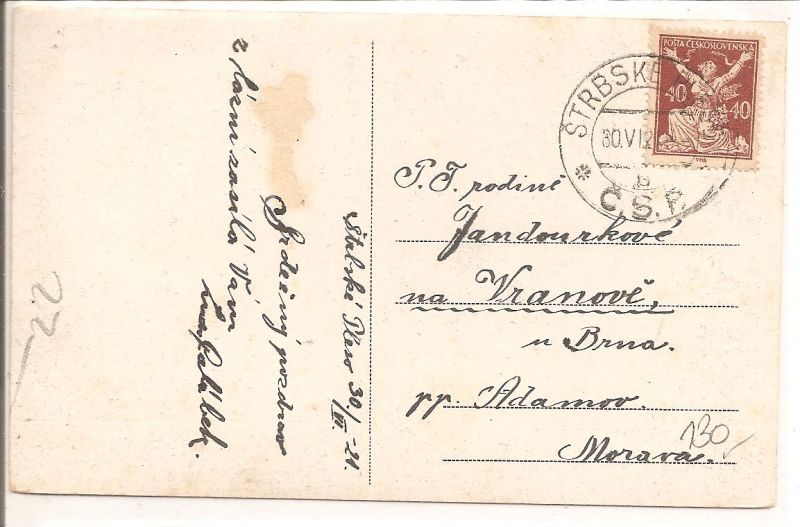 Štrbské Pleso 30/VI.-21.
Srdečný pozdrav
z lázní zasílá Vám
POŠTA ČESKOSLOVENSKÁ
40 40
ŠTRBSKÉ
30.VI.2
B
Č.S.R.
P. T. rodině
Jandourkově
na Vranově,
u Brna.
pp. Adamov.
Morava.
130
22